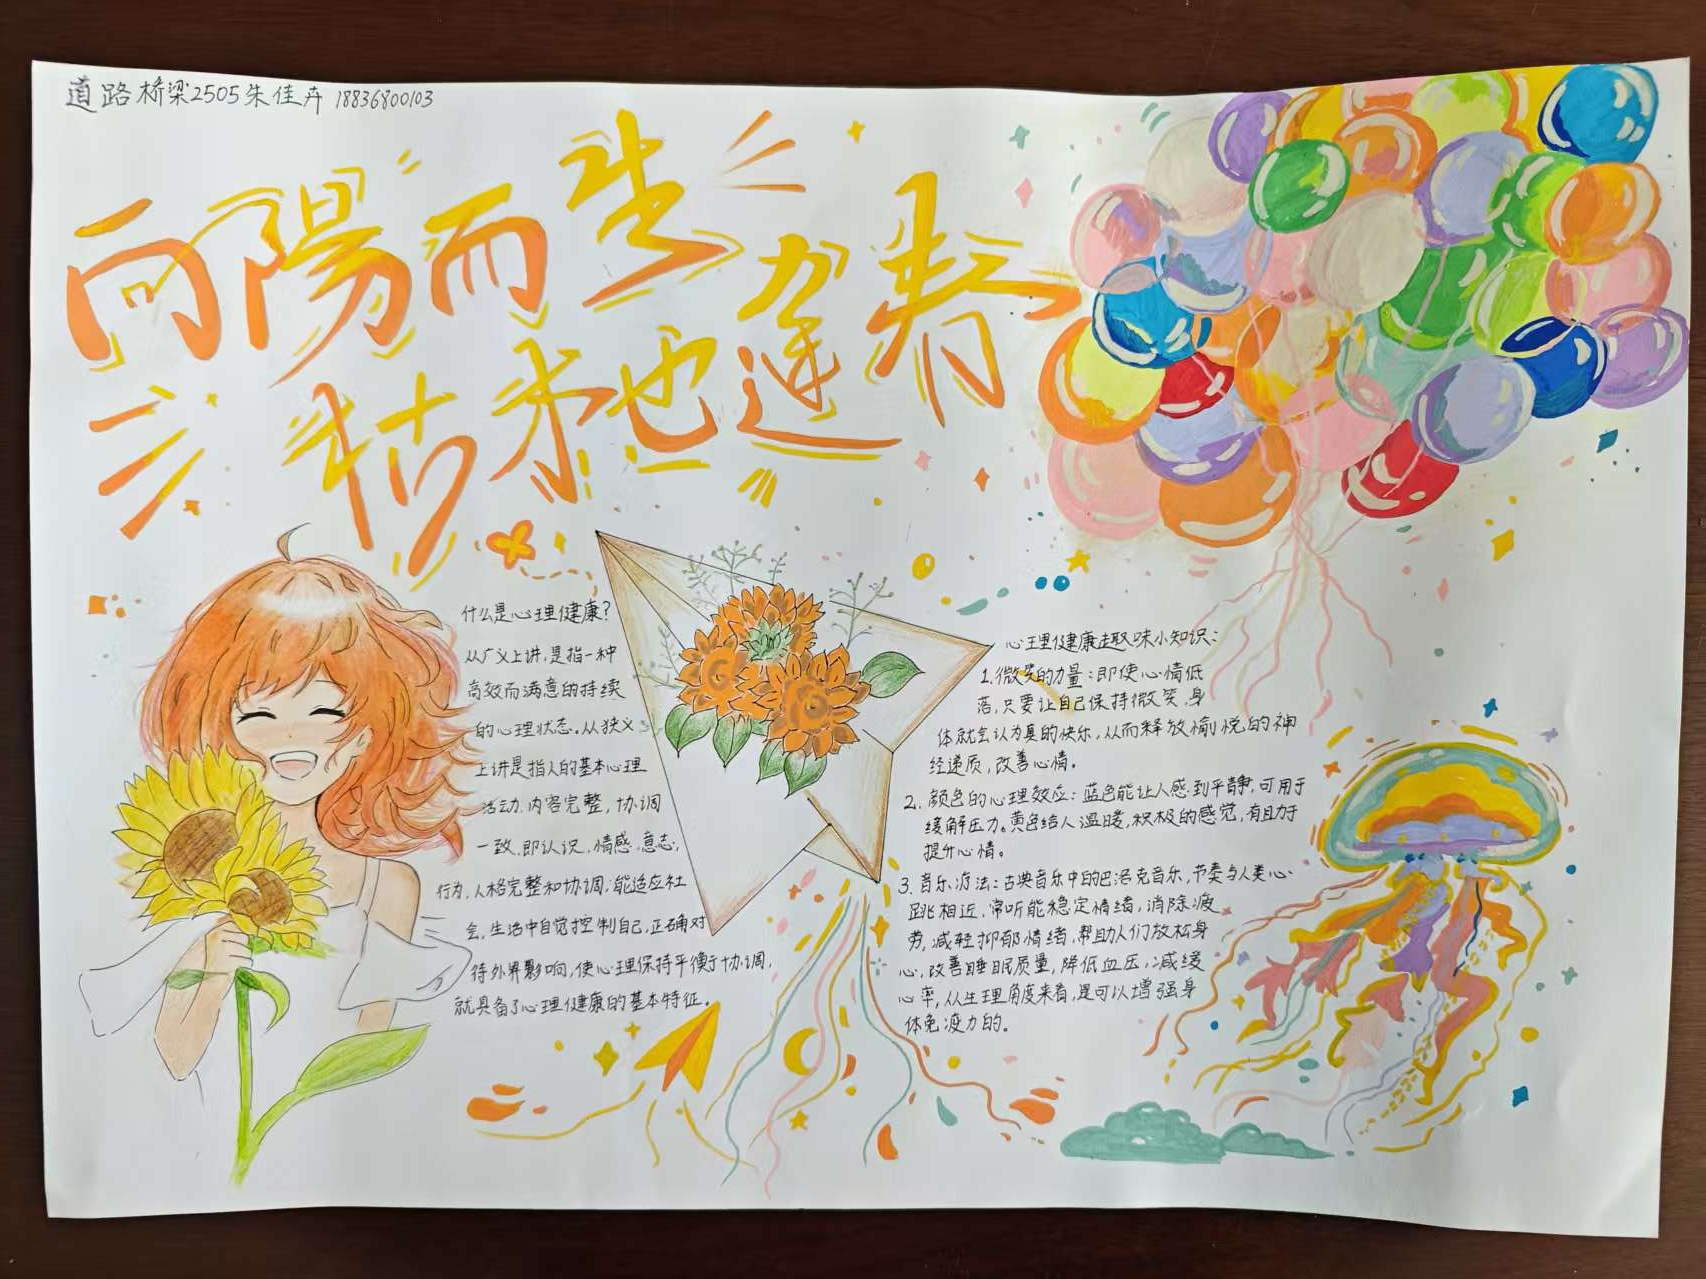 道路桥梁2505朱佳卉 18836800103
向陽而生
枯木也逢春
什么是心理健康?
从广义上讲,是指一种
高效而满意的持续
的心理状态。从狭义
上讲是指人的基本心理
活动、内容完整,协调
一致,即认识、情感、意志、
行为、人格完整和协调;能适应社
会,生活中自觉控制自己,正确对
待外界影响,使心理保持平衡于协调,
就具备了心理健康的基本特征。
心理健康趣味小知识:
1.微笑的力量:即使心情低
落,只要让自己保持微笑,身
体就会认为真的快乐,从而释放愉悦的神
经递质,改善心情。
2.颜色的心理效应:蓝色能让人感到平静,可用于
缓解压力。黄色给人温暖,积极的感觉,有助于
提升心情。
3.音乐疗法:古典音乐中的巴洛克音乐,节奏与人类心
跳相近,常听能稳定情绪,消除疲
劳,减轻抑郁情绪,帮助人们放松身
心,改善睡眠质量,降低血压,减缓
心率,从生理角度来看,是可以增强身
体免疫力的。